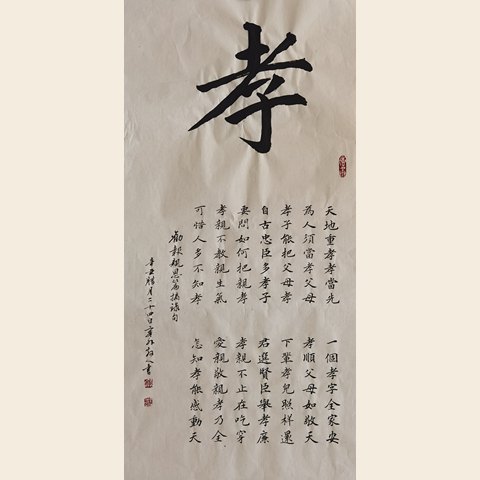 孝
天地重孝孝當先 一個孝字全家安
為人須當孝父母 孝順父母如敬天
孝子能把父母孝 下輩孝兒照樣還
自古忠臣多孝子 君選賢臣舉孝廉
要問如何把親孝 孝親不止在吃穿
孝親不教親生氣 愛親敬親孝乃全
可惜人多不知孝 怎知孝能感動天
勸報親恩篇摘錄句
辛丑臘月二十四日 書